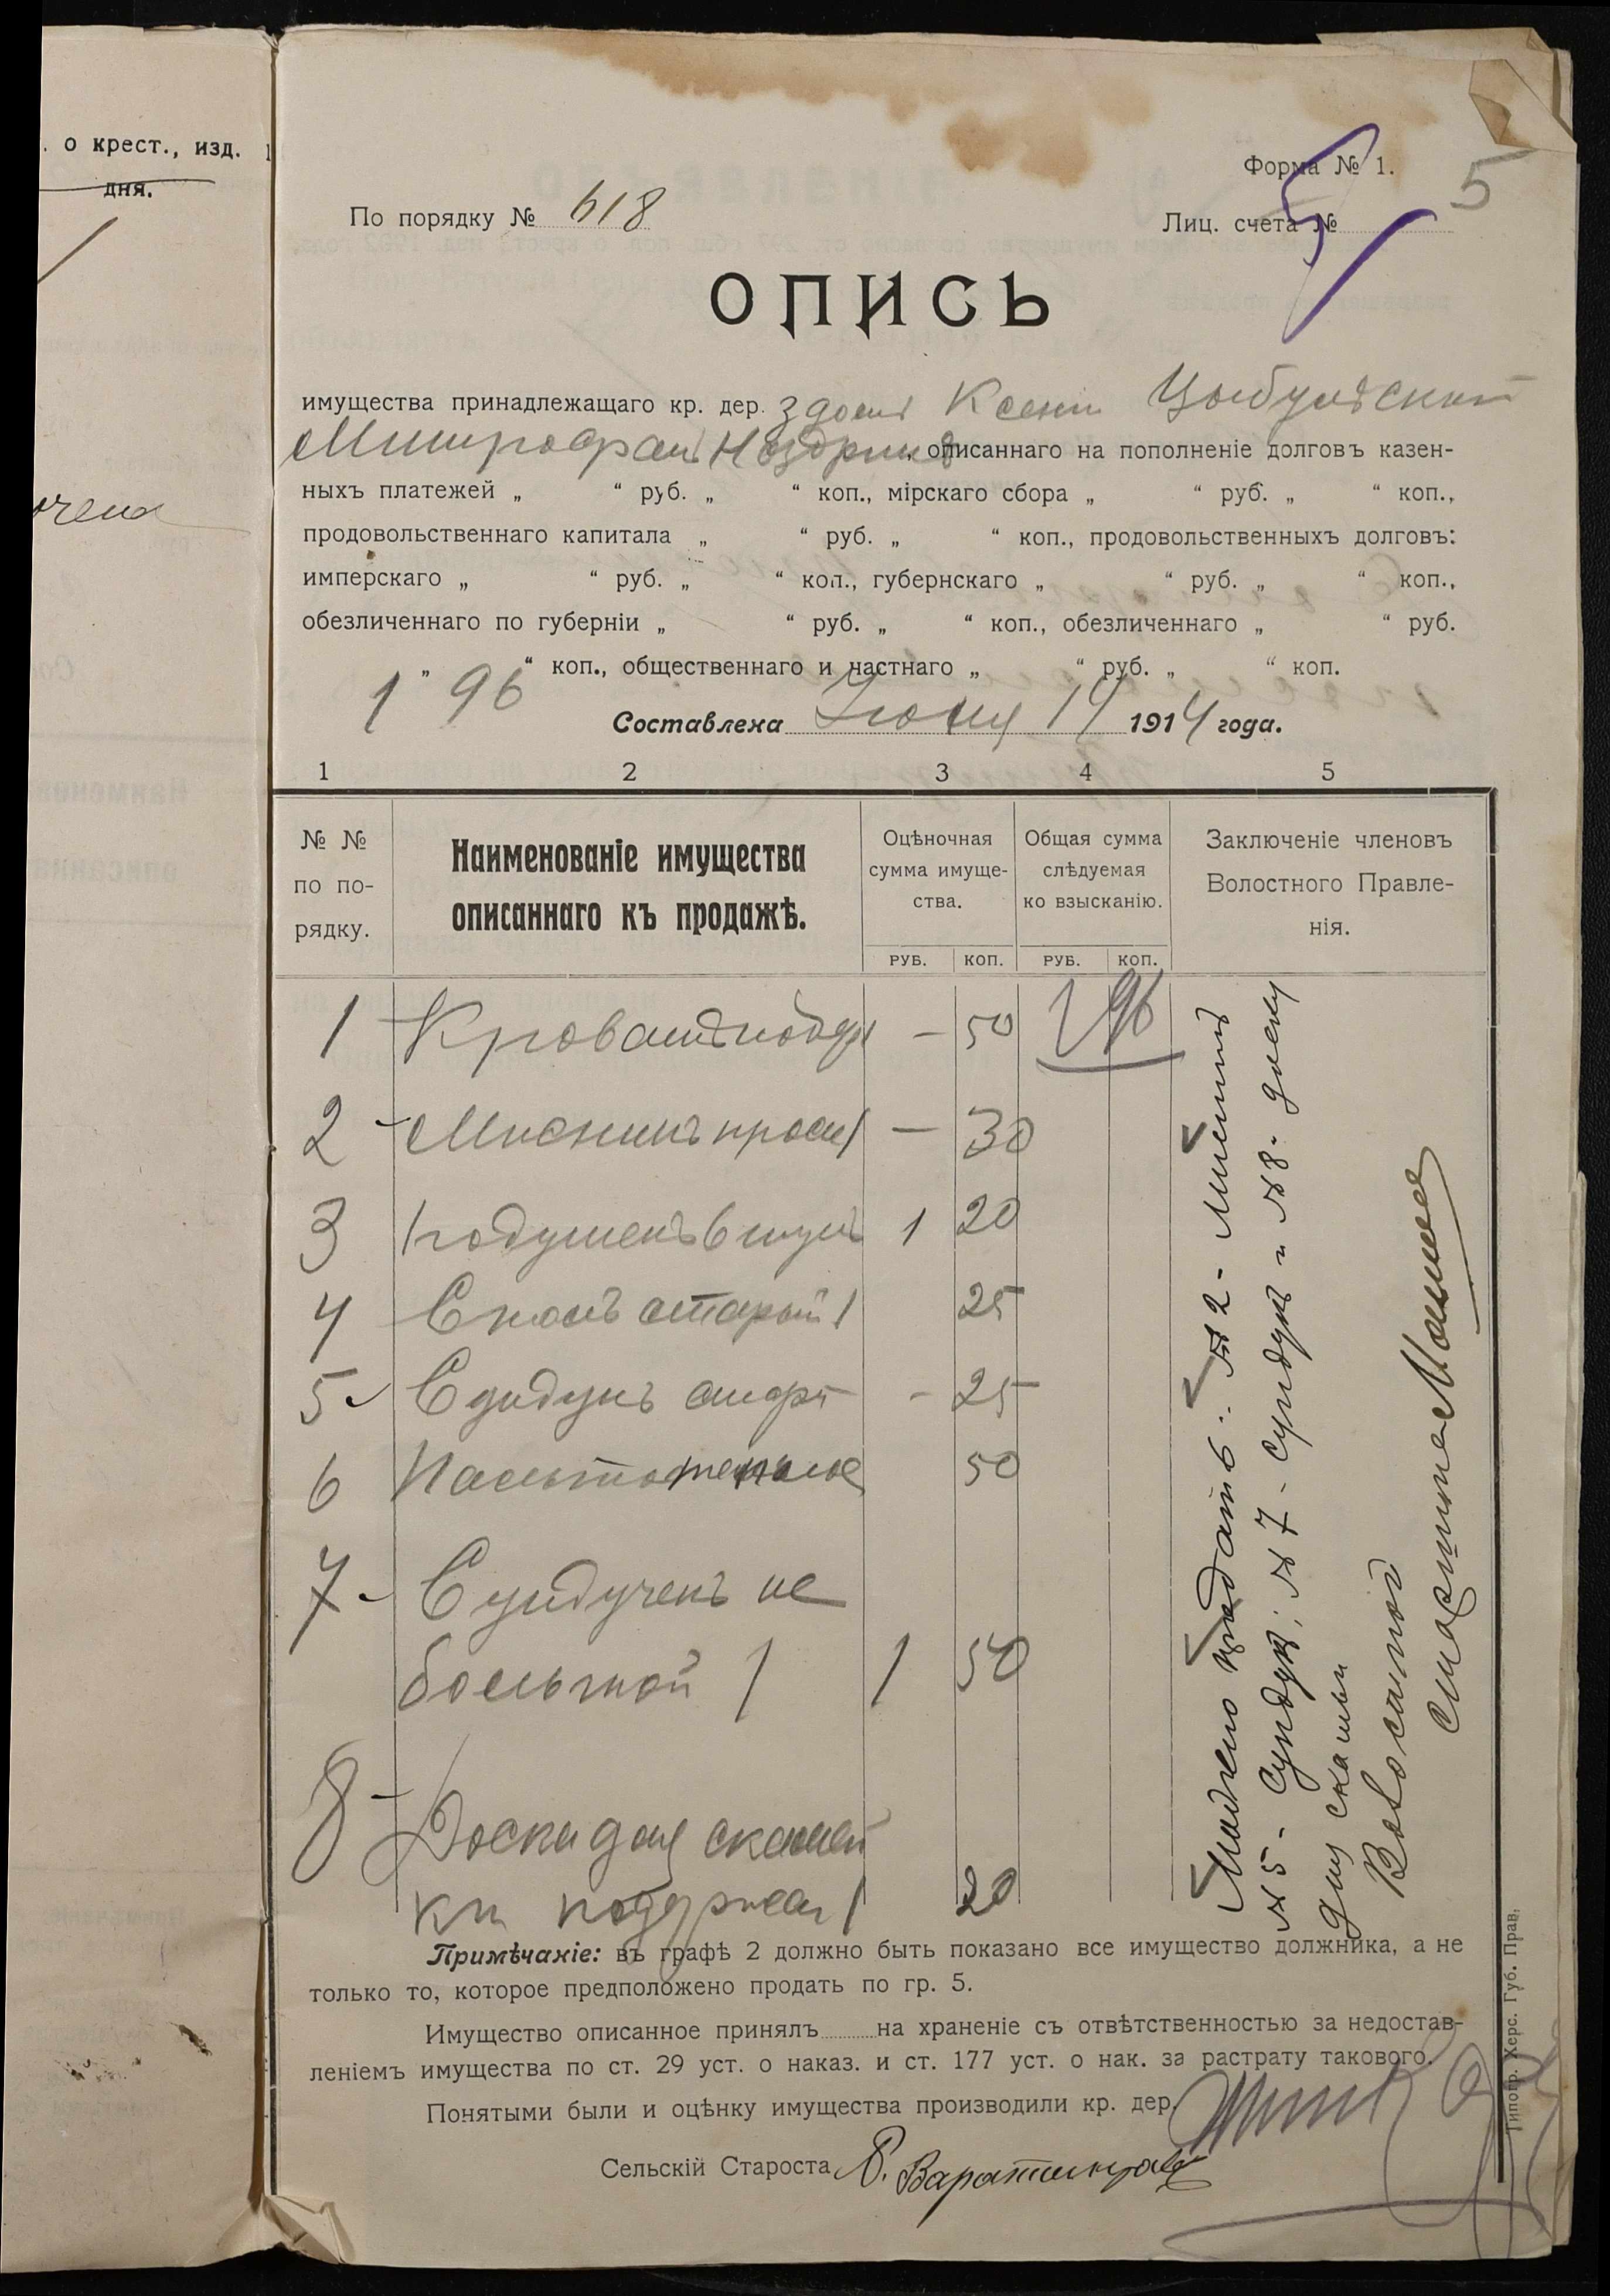 . о крест., изд. 1
дня.
Форма № 1.
5
5
По порядку № 618
Лиц. счета №
ОПИСЬ
имущества принадлежащаго кр. дер. Ксени
Митрофан , описаннаго на пополненіе долговъ казен-
ныхъ платежей „ “ руб. „ “ коп., мірскаго сбора „ “ руб. „ “ коп.,
продовольственнаго капитала „ “ руб. „ “ коп., продовольственныхъ долговъ:
имперскаго „ “ руб. „ “ коп., губернскаго „ “ руб. „ “ коп.,
обезличеннаго по губерніи „ “ руб. „ “ коп., обезличеннаго „ “ руб.
„ “ коп., общественнаго и частнаго „ “ руб. „ “ коп.
1 96
Составлена Іюня 14 1914 года.
1 2 3 4 5
№ № по по-рядку.
Наименованіе имущества
описаннаго къ продажѣ.
Оцѣночная
сумма имуще-
ства.
Общая сумма
слѣдуемая
ко взысканію.
Заключеніе членовъ
Волостного Правле-
нія.
РУБ. КОП. РУБ. КОП.
1 Кровать — 50 1 96
2 - — 30
3 подушекъ 6 штукъ 1 20
4 старый 1 25
5 Сундукъ стары - 25
6 Пальто теплое 50
7 - Сундучекъ не
большой 1 1 50
8 - Доски для скамей
ки 1 20
Можно продать: №2 -
№5 - Сундукъ; №7 - Сундукъ и №8. доску
для скамьи
Волостной
старшина
Примѣчаніе: въ графѣ 2 должно быть показано все имущество должника, а не
только то, которое предположено продать по гр. 5.
Имущество описанное принялъ на храненіе съ отвѣтственностью за недостав-
леніемъ имущества по ст. 29 уст. о наказ. и ст. 177 уст. о нак. за растрату такового.
Понятыми были и оцѣнку имущества производили кр. дер.
Сельскій Староста
Типогр. Херс. Губ. Прав.